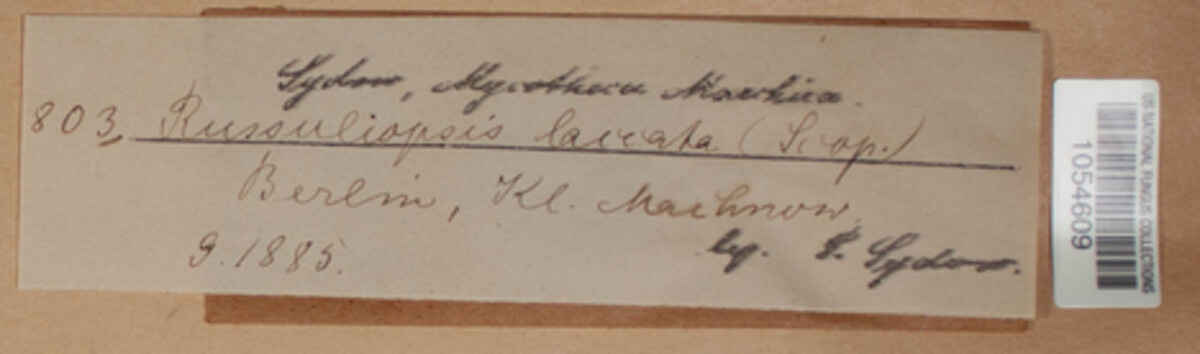 Sydow, Mycotheca Marchica.
803. Russuliopsis laccata (Scop.)
Berlin, Kl. Machnow.
9.1885.
leg. P. Sydow.
US NATIONAL FUNGUS COLLECTIONS
1054609